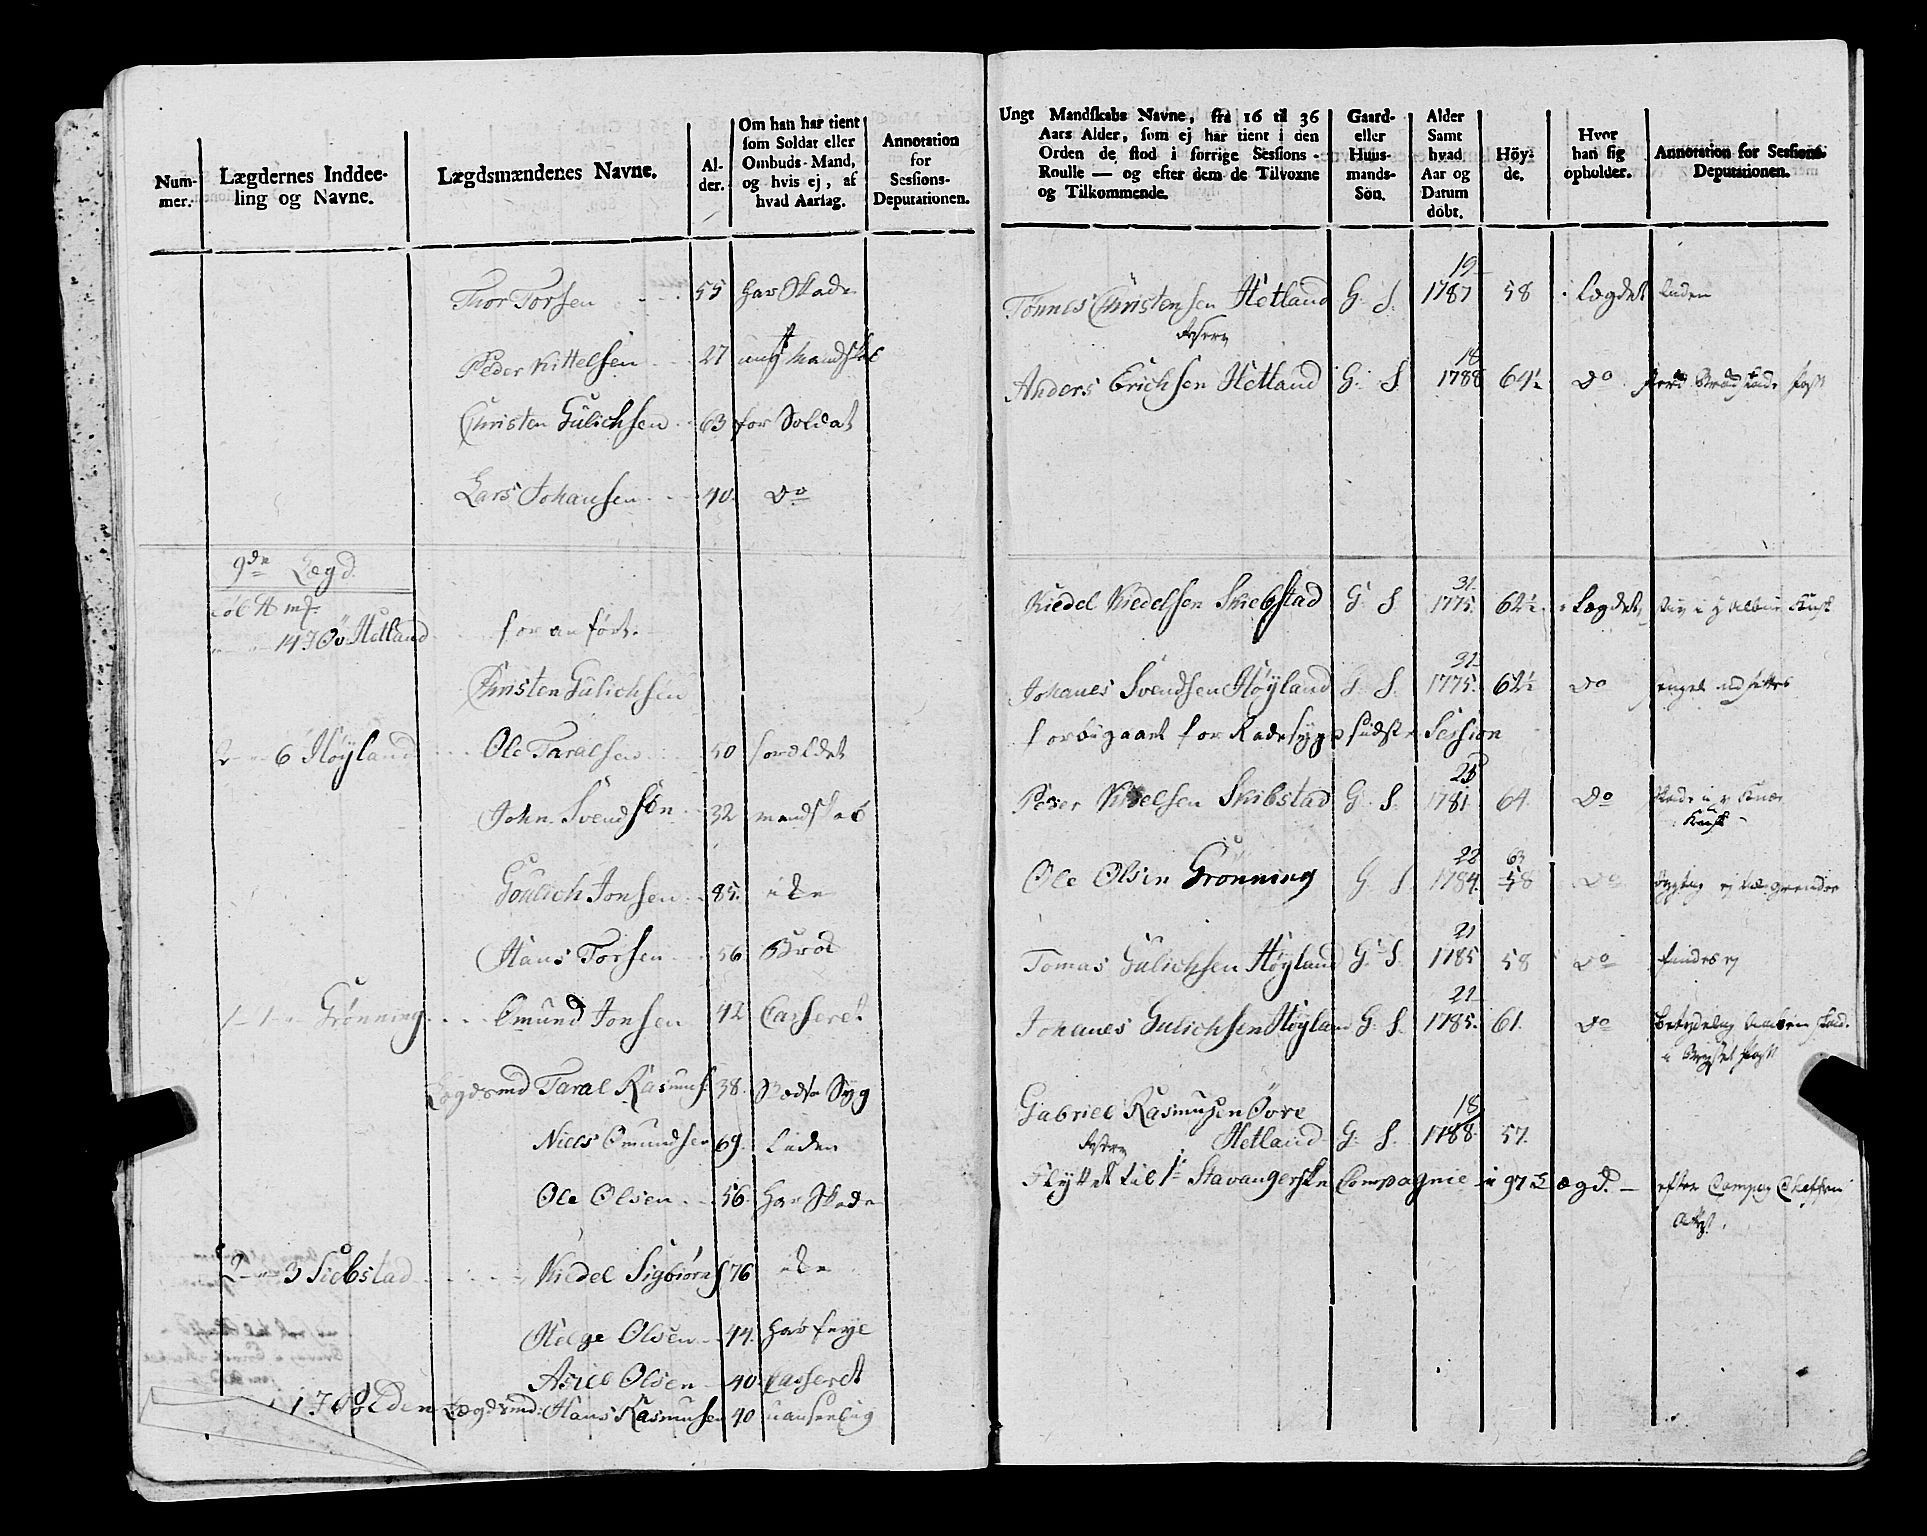 Num-
mer.
Lægdernes Inddee-
ling og Navne.
Lægdsmændenes Navne.
Al-
der.
Om han har tient
som Soldat eller
Ombuds-Mand,
og hvis ej, af
hvad Aarsag.
Annotation
for
Sessions-
Deputationen.
Thor Torsen 55 har Skade
Peder Kittelsen 27 ungt Mandskab
Christen Gulichsen 63 for Soldat
Lars Johansen 40 Do
9de Lægd
Hetland for anført.
Christen Gulichsen
2 6 Høyland Ole Taralsen 50 foreldet
John Svendsøn 32 mandskab
Goulich Jonsen 85. ude
Hans Torsen 56 Brok
1 1 Grønning Emund Jonsen 42 Casseret
Lægdsmd Taral Rasmus. 38. Syg
Niels Omundsen 69. Liden
Ole Olsen 56. har Skade
2 3 Siebstad Kiedel Sigbiørns 76 ude
Helge Olsen 44. har
Asiel Olsen 40. Casseret
Lægdsmd. Hans Rasmusen 40 uanseelig
Ungt Mandskabs Navne, fra 16 til 36
Aars Alder, som ej har tient i den
Orden de stod i forrige Sessions-
Roulle — og efter dem de Tilvoxne
og Tilkommende.
Gaard-
eller
Huus-
mands-
Søn.
Alder
Samt
hvad
Aar og
Datum
døbt.
Höy-
de.
Hvor
han sig
opholder.
Annotation for Sessions-
Deputationen.
19
Tønnes Christensen Hetland G. S. 1787 58 Lægdet liden
18
Anders Erichsen Hetland G. S. 1788 64½ Do
31
Kiedel Kiedelsen Skiebstad G. S 1775. 62½ Lægdet
31
Johanes Svendsen Høyland G. S. 1775. 62½ Do
forbigaaet for Radesyge sidste Session
Peder Kidelsen Skibstad G. S. 1781. 64. Do
22 63
Ole Olsen Grønning G S 1784. 58 Do
21
Tomas Gulichsen Høyland G. S. 1785 58 Do findes ej
21
Johanes Gulichsen Høyland G. S. 1785. 61. Do
i Brystet
Gabriel Rasmusen Øvre 18
Hetland G. S. 1788. 57.
Flyttet til 1te Stavangerske Compagnie i 97 Lægd. — efter Comp Cheffen